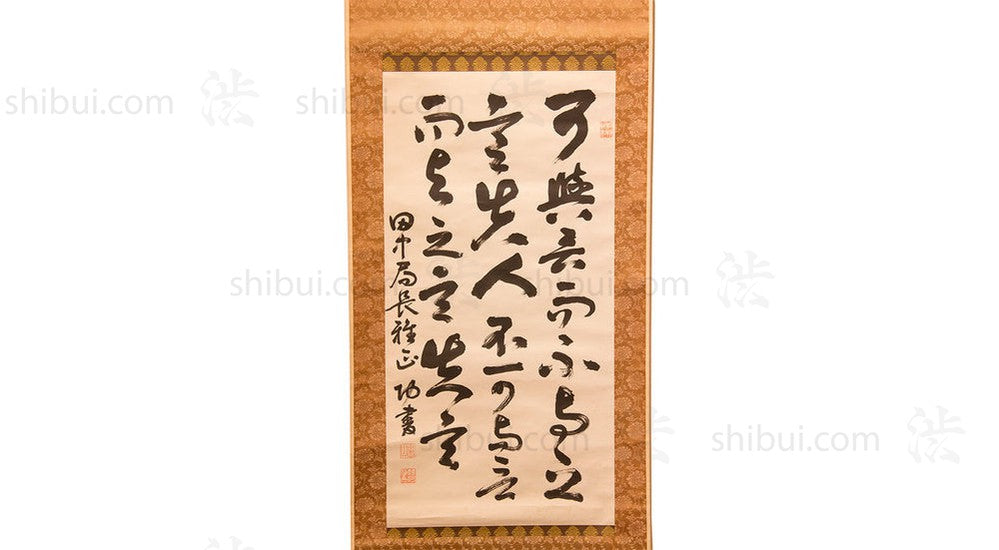 可與言而不与之
言失人不可与言
而与之言失言
田中局長雅正 功書
shibui.com 渋
shibui.com
shibui.com
渋
渋
shibui.com 渋